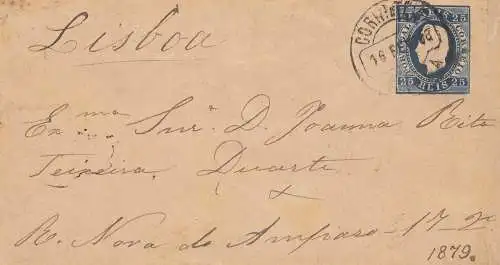 Lisboa
CORREIO
16
25 REIS 25
Exma Snrª D. Joanna Rita
Teixeira Duarte
R. Nova do Amparo-17-2º
1879.